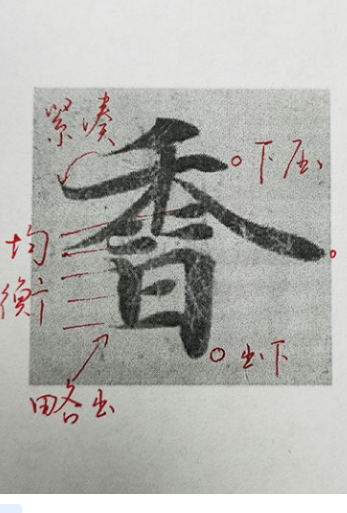 紧凑
下压
香
均衡
出下
略出